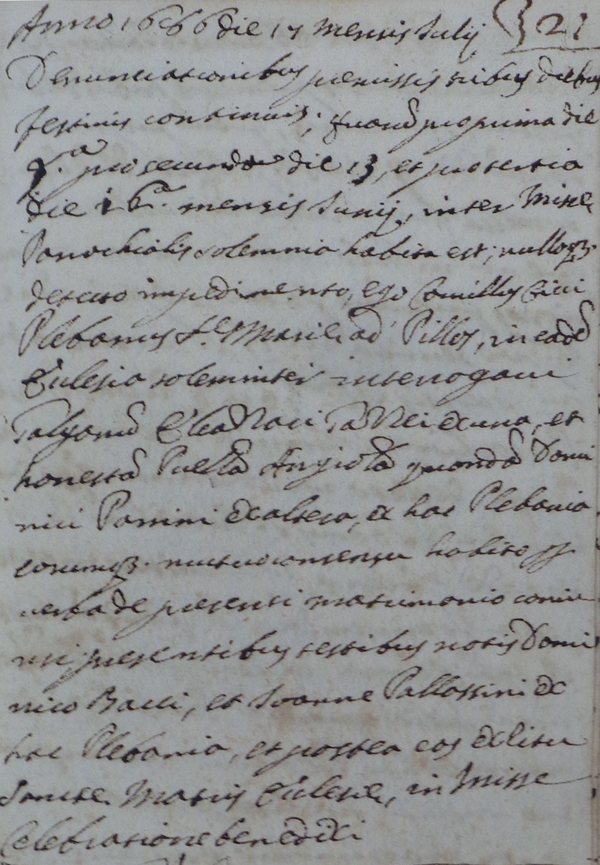 Anno 1666 die 17 mensis Julij 21
Denunciationibus premissis tribus diebus
festivis continuis, quarum prima die
pro secunda die 13, et pro tertia
die mensis Junij, inter Misse
Parochialis solemnia habita est; nulloq3.
detecto impedimento, ego Camillus Cicci
Plebanus S.te Marie ad Pillos, in eadē
Eclesia solemniter interogavi
et
honestā Puellā Angiolā quondā Domi
nici Parrini ex altera, ex hac Plebania
eorumq3. mutuo consensu habito
verba de presenti matrimonio coniu
nxi presentibus testibus notis Domi
nico Bacci, et Joanne Pallassini ex
hac Plebania, et postea eos ex ritu
Sancte Matris Eclesie, in Misse
Celebratione benedixi